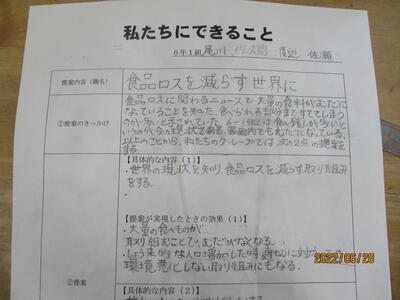 私たちにできること
6年1組 尾川 佐久間 渡辺 佐瀬
提案内容(題名)
食品ロスを減らす世界に
①提案のきっかけ
食品ロスに関わるニュースで大量の食料がむだに
なっていることを知た。食べられる部分まですててしまう
のが多いと示されていた。
いうのが今の現状である。家庭内でもむだになっている。
以上のことから、私たちのグループでは、次の2点の提案を
する。
【具体的な内容(1)】
・世界の現状を知り、食品ロスを減らす取り組み
をする。
【提案が実現したときの効果(1)】
・大量の食べものが
取り組むことで、むだがなくなる。
・しょう来的な人口増加した時、適切に対応
環境悪化しない取り組みにもなる。
②提案
【具体的な内容(2)】
2022/06/20